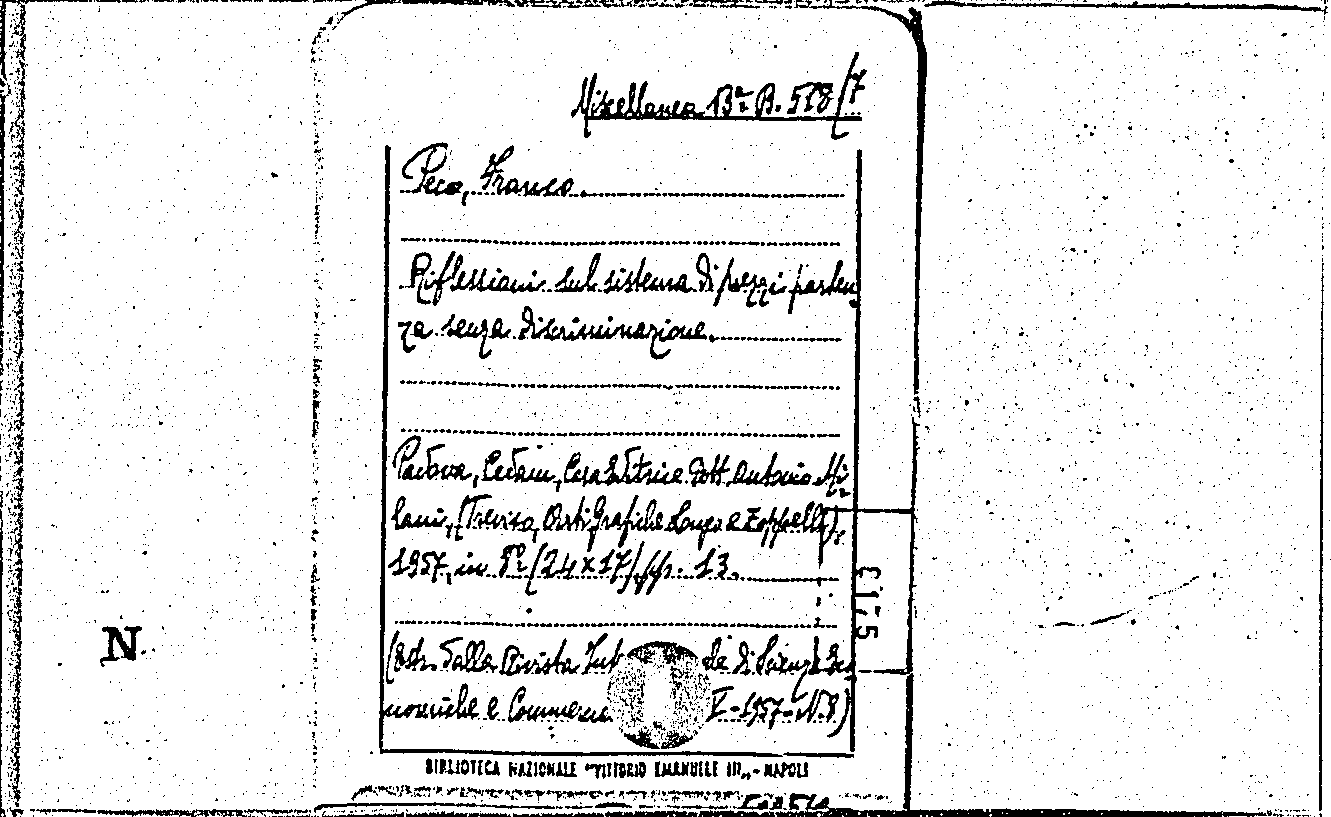 Miscellanea Bª B. 518/7
Peco, Franco.
Riflessioni sul sistema di prezzi parten
za senza discriminazione.
Padova, Cedam, Casa Editrice Dott. Antonio Mi
lani, (Treviso, Arti Grafiche Longo e Zoppelli),
1957, in 8º (24x17), pp. 13.
£175
(Estr. dalla Rivista Int le di Scienze Eco
nomiche e Commerc V-1957-N.8)
N
BIBLIOTECA NAZIONALE "VITTORIO EMANUELE III" - NAPOLI